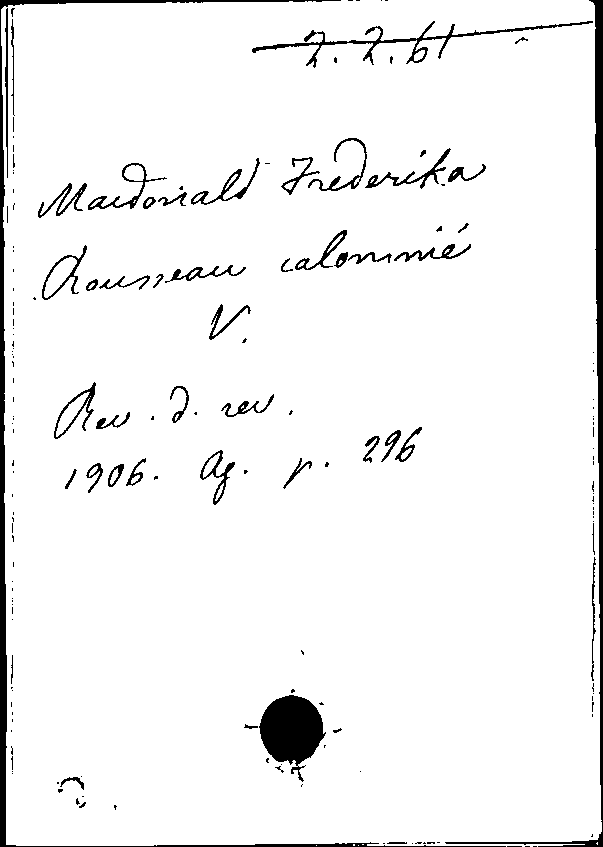 2.2.61
Macdonald Frederika
Rousseau calomnié
V.
Rev. d. rev.
1906. Ag. p. 296